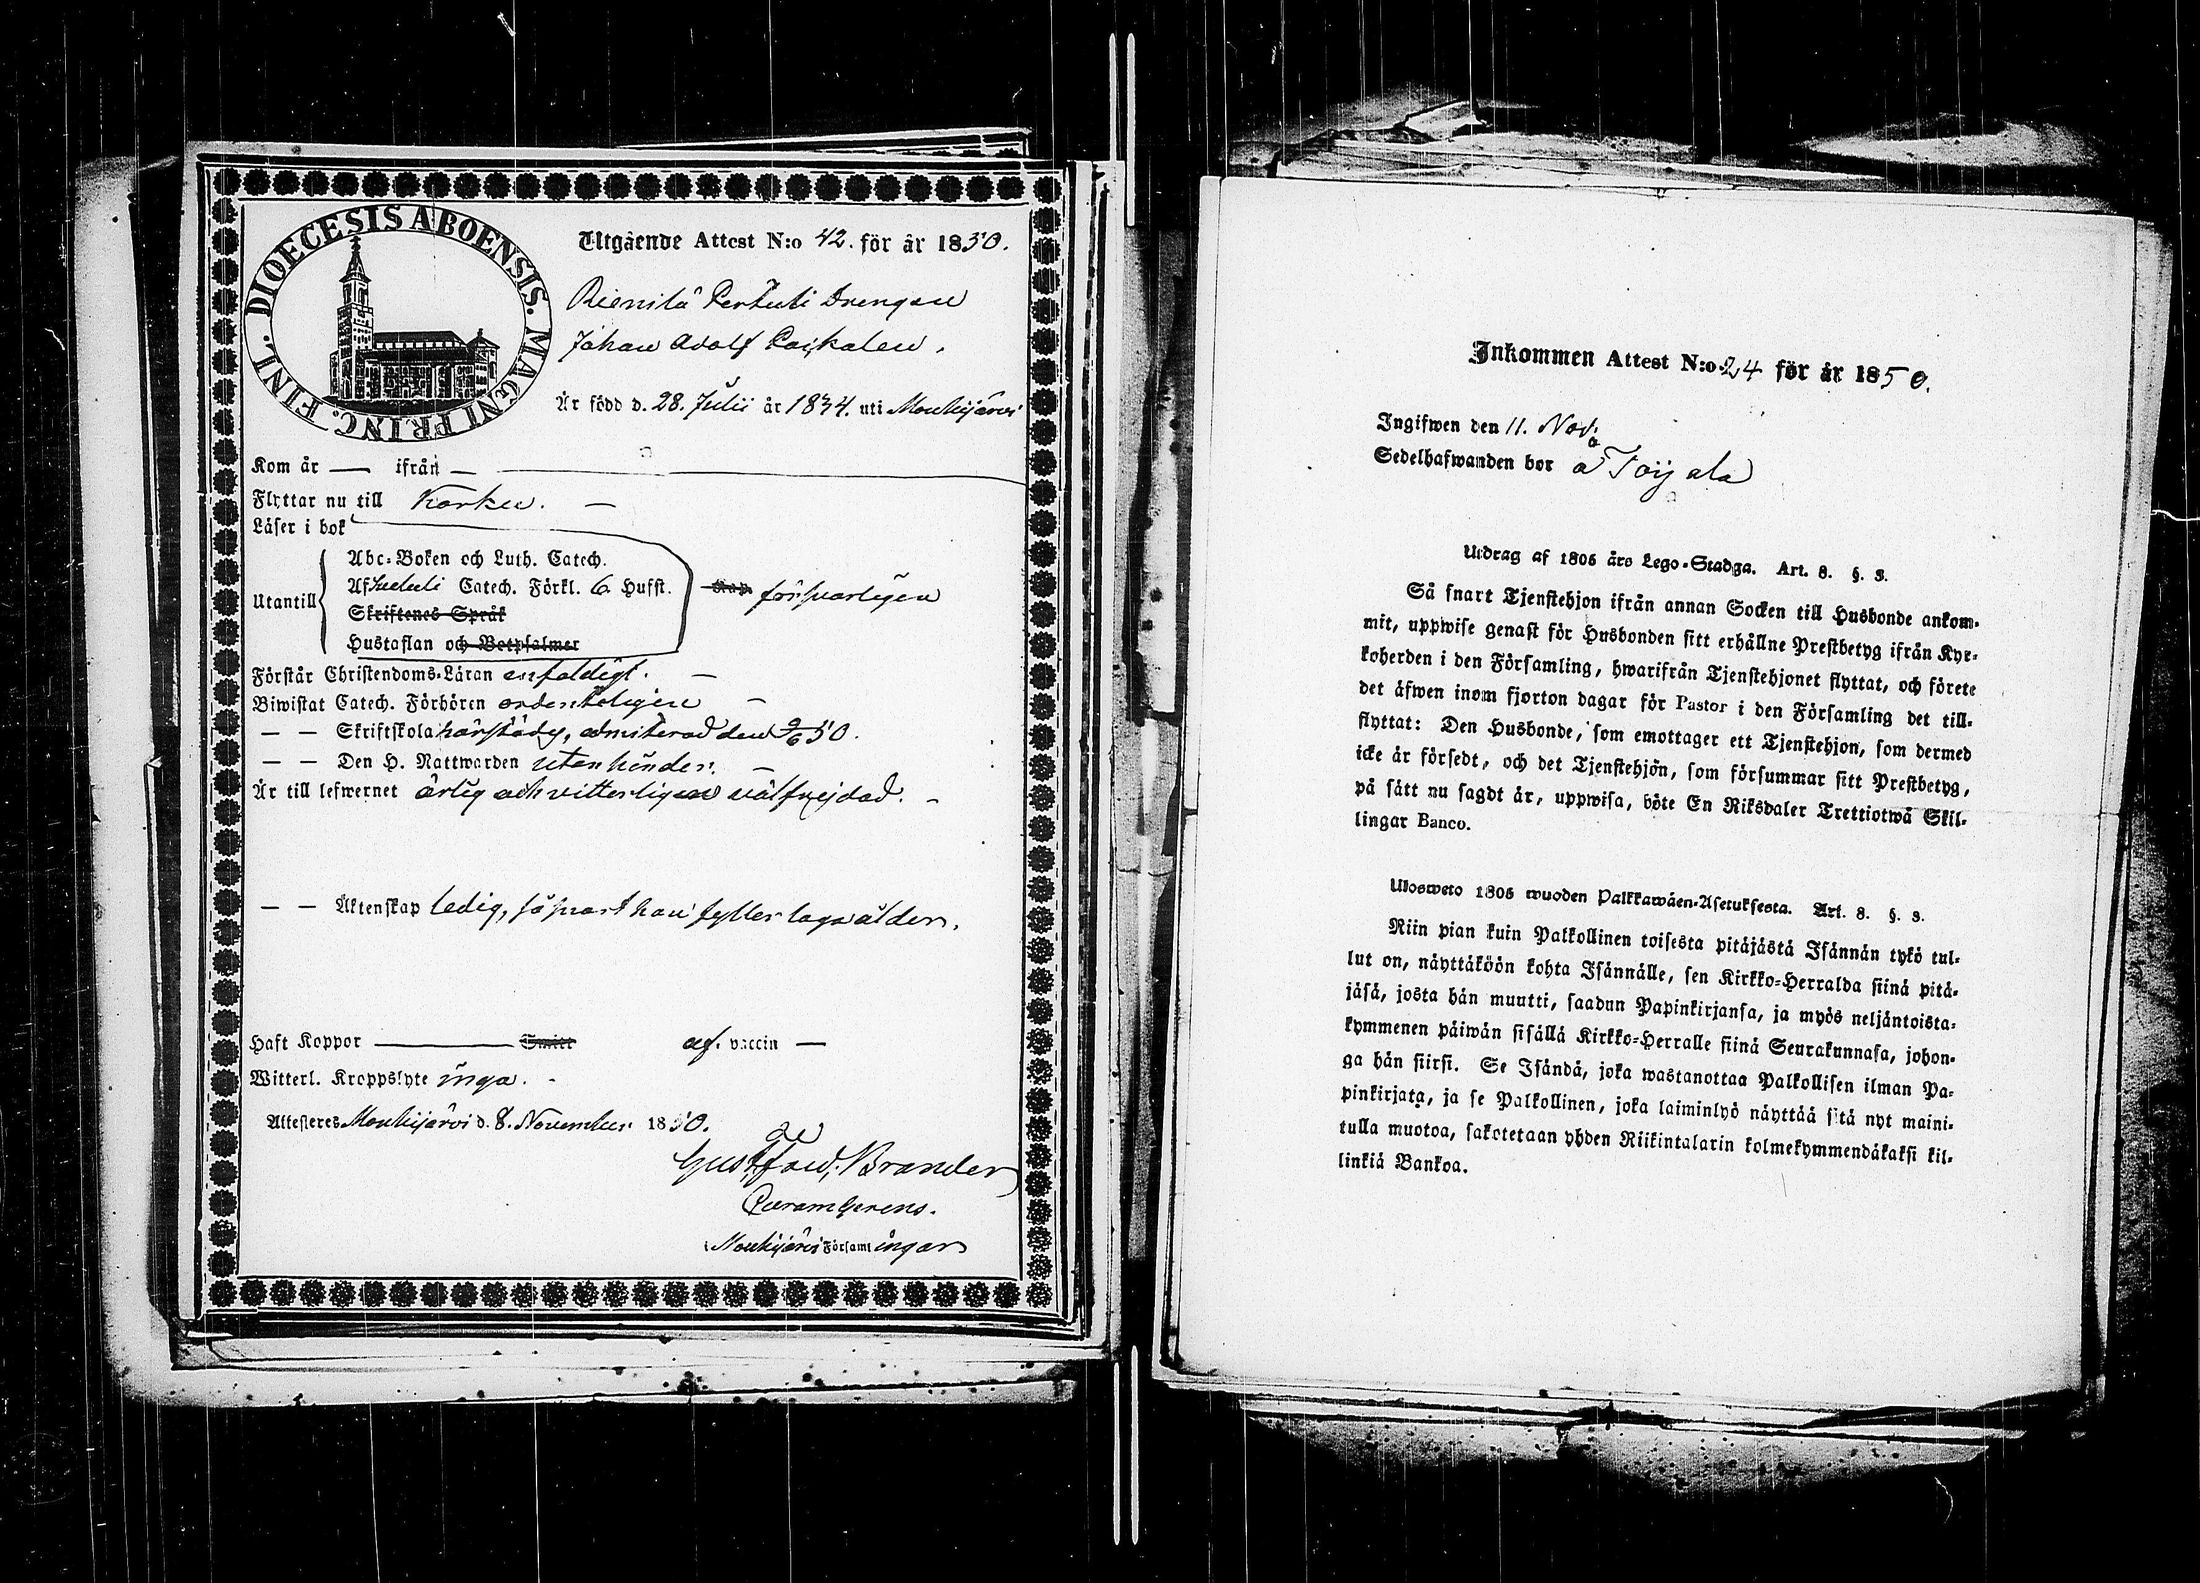 DIOECESIS ABOENSIS. MAGNI PRINC. FINL.
Utgående Attest N:o 42. för år 1850.
Pienilä Perttuli Drengen
Johan Adolf Paikalen.
Är född d. 28. Julii år 1834. uti Mouhijärvi
Kom år — ifrån —
Flyttar nu till Karku. —
Läser i bok
Abc-Boken och Luth. Catech.
Af Catech. Förkl. 6 Hufst.
Utantill
Skriftenes Språk
Hustaflan och Botpsalmer
Kap. försvarligen
Förstår Christendoms-Läran enfaldigt. —
Biwistat Catech. Förhören ordenteligen —
— — Skriftskola härstädes, admitterad den 2/6 50.
— — Den H. Nattwarden utan hinder. —
Är till lefwernet ärlig och vitterligen välfrejdad. —
— — Äktenskap ledig, så snart han fyller laga ålder.
Haft Koppor — Smitt af. vaccin —
Witterl. Kroppslyte inga. -
Attesteres Mouhijärvi d. 8. November 1850.
Gust. Brander
Curam Gerens.
i Mouhijärvi Församlingar
Inkommen Attest N:o 24 för år 1850.
Ingifwen den 11. Nov.
Sedelhafwanden bor å Toijala
Utdrag af 1805 års Lego-Stadga. Art. 8. §. 3.
Så snart Tjenstehjon ifrån annan Socken till Husbonde ankom-
mit, uppwise genast för Husbonden sitt erhållne Prestbetyg ifrån Kyr-
koherden i den Församling, hwarifrån Tjenstehjonet flyttat, och förete
det äfwen inom fjorton dagar för Pastor i den Församling det till-
flyttat: Den Husbonde, som emottager ett Tjenstehjon, som dermed
icke är försedt, och det Tjenstehjon, som försummar sitt Prestbetyg,
på sätt nu sagdt är, uppwisa, böte En Riksdaler Trettiotwå Skil-
lingar Banco.
Ulosweto 1805 wuoden Palkkawäen-Asetuksesta. Art. 8. §. 3.
Niin pian kuin Palkollinen toisesta pitäjästä Isännän tykö tul-
lut on, näyttäköön kohta Isännälle, sen Kirkko-Herralda siinä pitä-
jäsä, josta hän muutti, saadun Papinkirjansa, ja myös neljäntoista-
kymmenen päiwän sisällä Kirkko-Herralle siinä Seurakunnasa, johon-
ga hän siirsi. Se Isändä, joka wastanottaa Palkollisen ilman Pa-
pinkirjata, ja se Palkollinen, joka laiminlyö näyttää sitä nyt maini-
tulla muotoa, sakotetaan yhden Riikintalarin kolmekymmendäkaksi kil-
linkiä Bankoa.